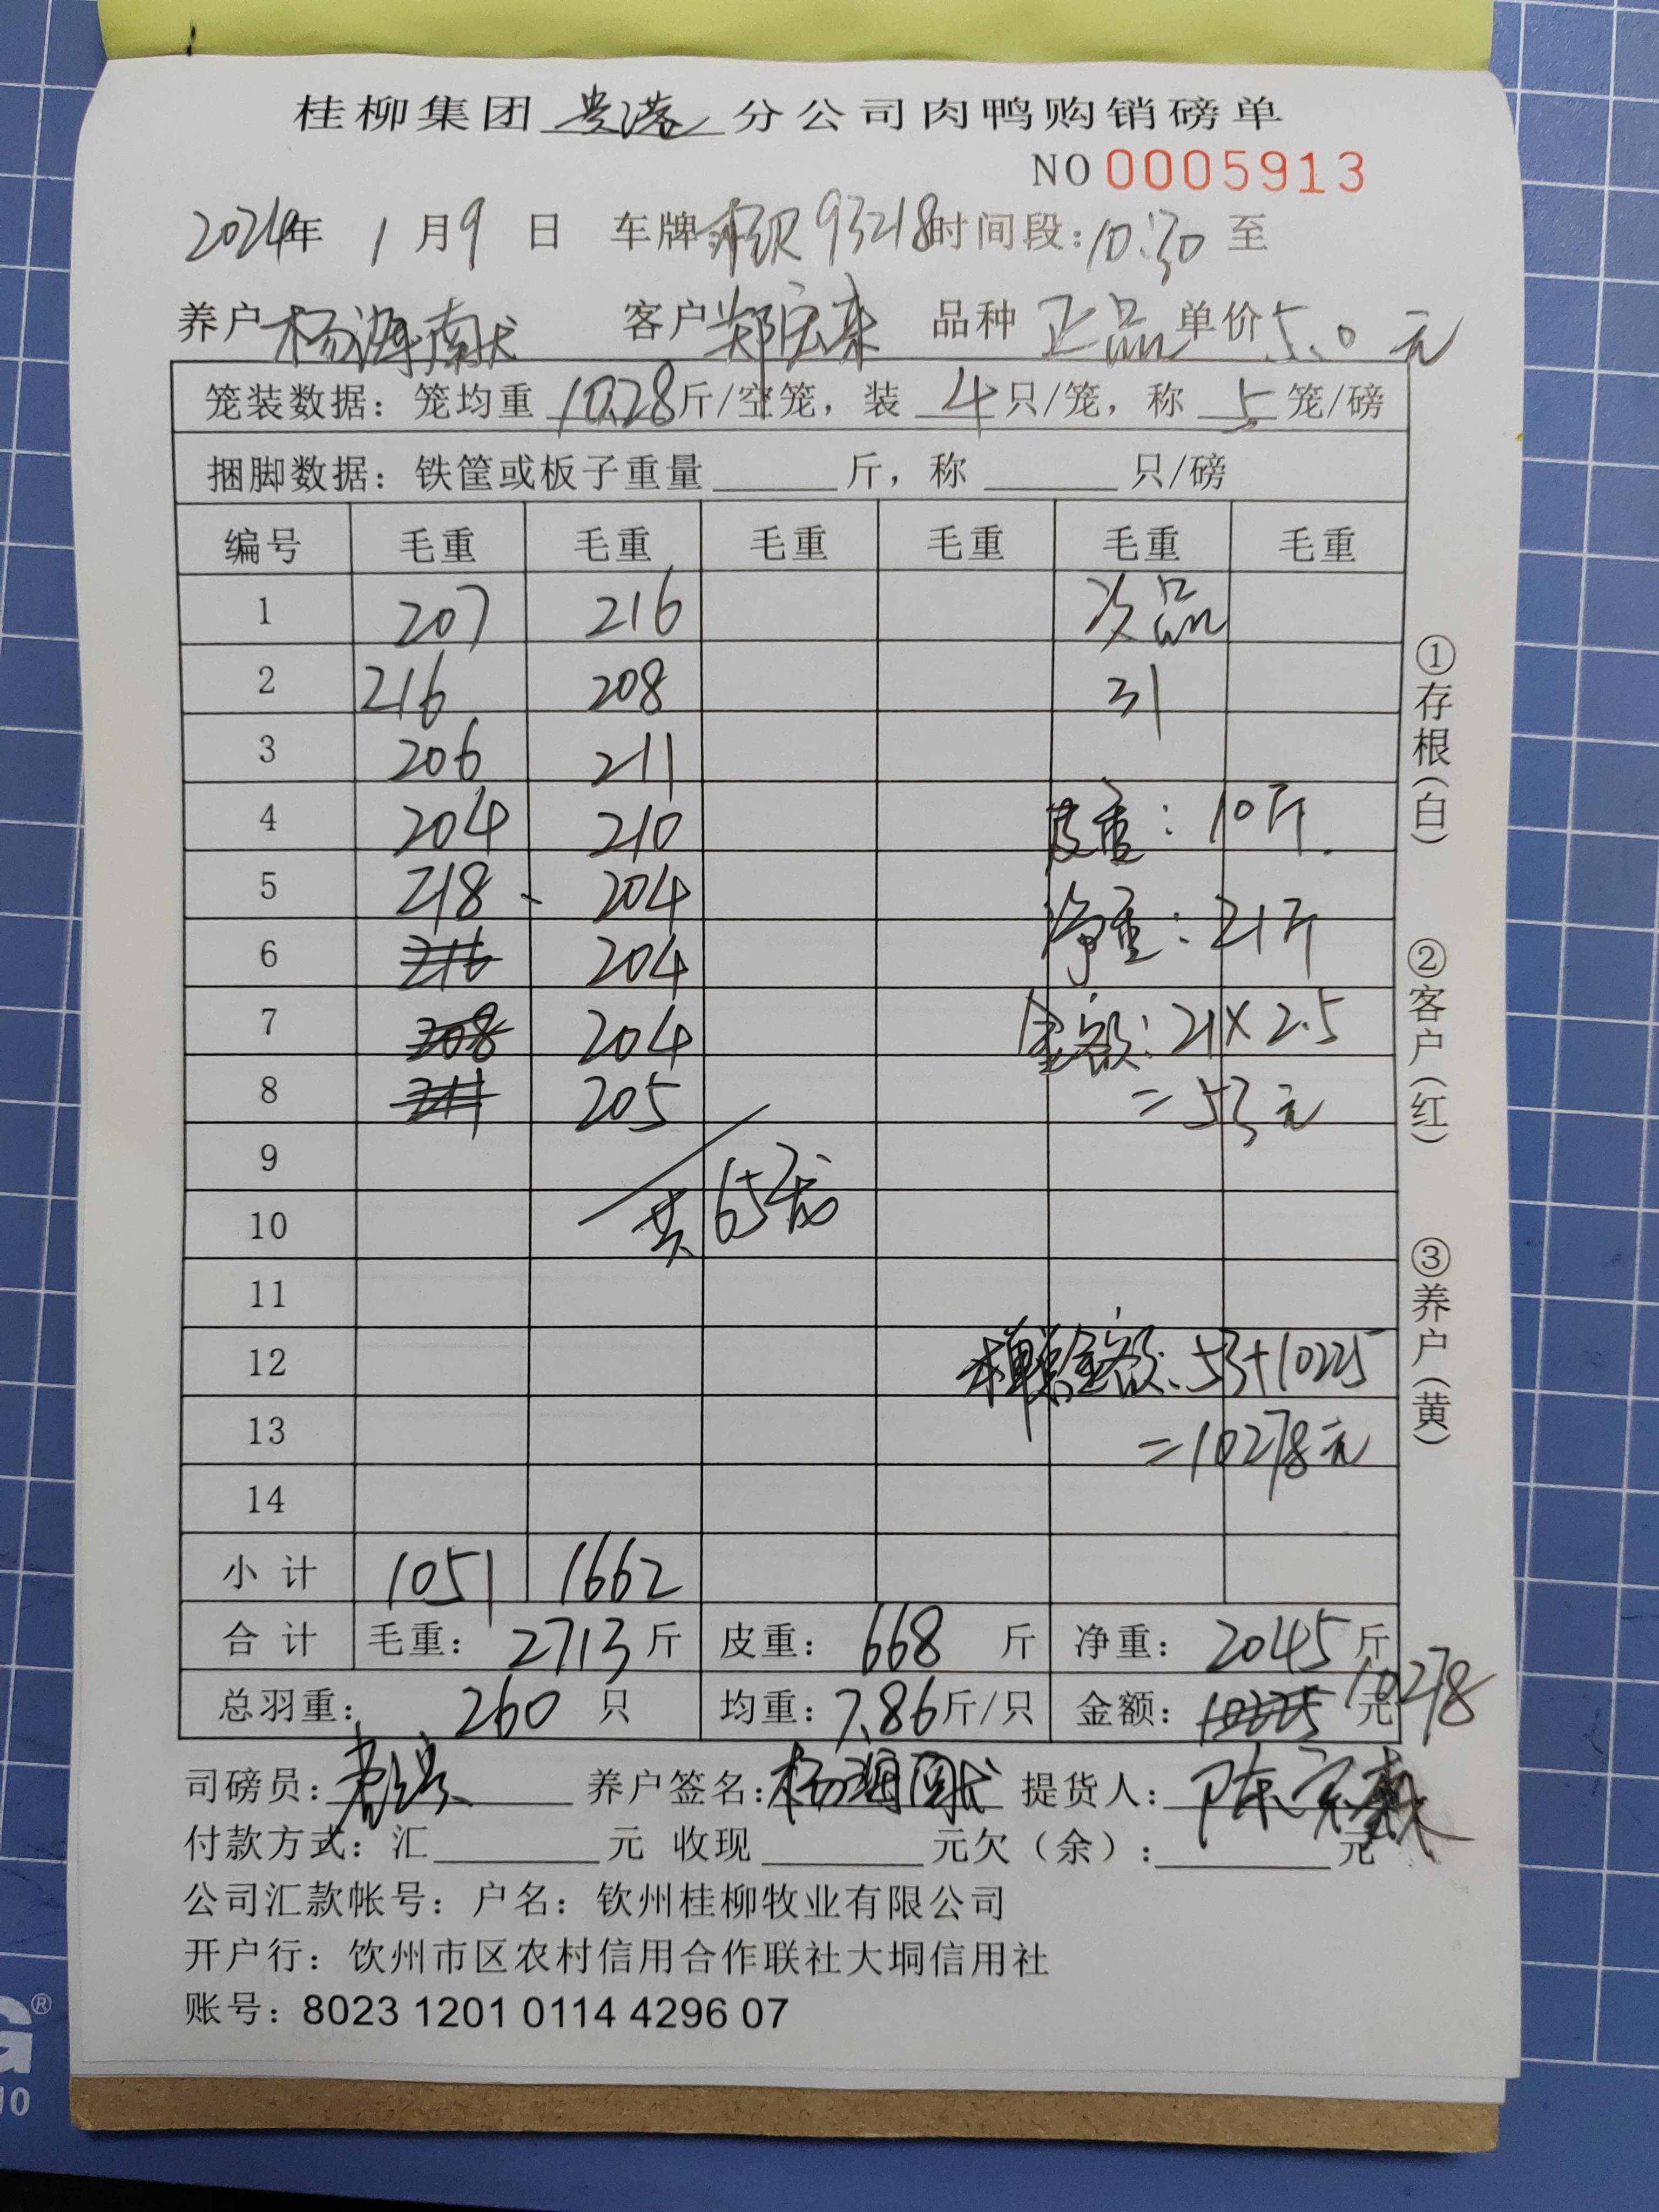 桂柳集团贵港分公司肉鸭购销磅单
NO 0005913
2024年 1月9日 车牌: 93218 时间段:10:30 至
养户 杨海 客户 郑宏来 品种 正品 单价 5.0 元
笼装数据: 笼均重 10.28 斤/空笼, 装 4 只/笼, 称 5 笼/磅
捆脚数据: 铁筐或板子重量 斤, 称 只/磅
编号 毛重 毛重 毛重 毛重 毛重 毛重
1 207 216 次品
2 216 208 31
3 206 211
4 204 210 皮重: 10斤.
5 218 204 净重: 21斤
6 216 204
7 208 204 金额: 21×2.5
8 211 205 =53元
9
10 共65笼
11
12 金额: 53+10225
13 =10278元
14
小计 1051 1662
合计 毛重: 2713 斤 皮重: 668 斤 净重: 2045 斤
总羽重: 260 只 均重: 7.86 斤/只 金额: 10225 元 10278
司磅员: 养户签名: 杨海 提货人: 陈
付款方式: 汇 元 收现 元欠(余): 元
公司汇款帐号: 户名: 钦州桂柳牧业有限公司
开户行: 饮州市区农村信用合作联社大垌信用社
账号: 8023 1201 0114 4296 07
①存根(白)
②客户(红)
③养户(黄)
G®
10